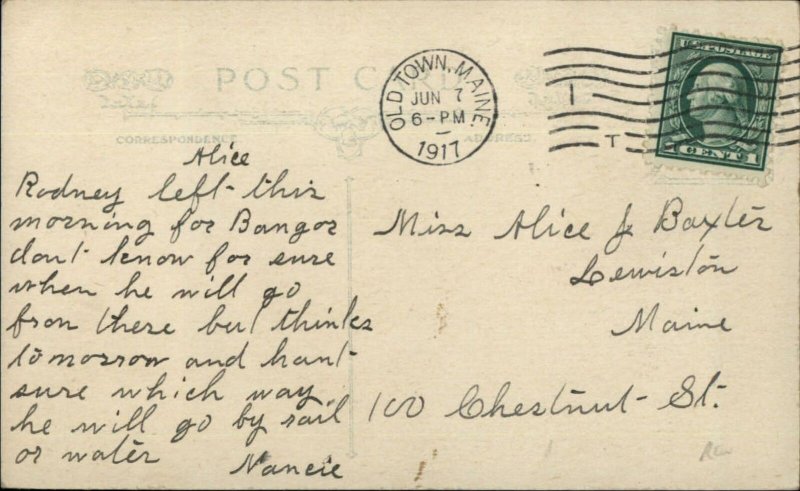 POST CARD
OLD TOWN, MAINE.
JUN 7
6-PM
1917
U.S. POSTAGE
1 CENT 1
CORRESPONDENCE
ADDRESS
Alice
Rodney left this
morning for Bangor
dont know for sure
when he will go
from there but thinks
tomorrow and hant
sure which way
he will go by rail
or water
Nancie
Miss Alice J Baxter
Lewiston
Maine
100 Chestnut St.